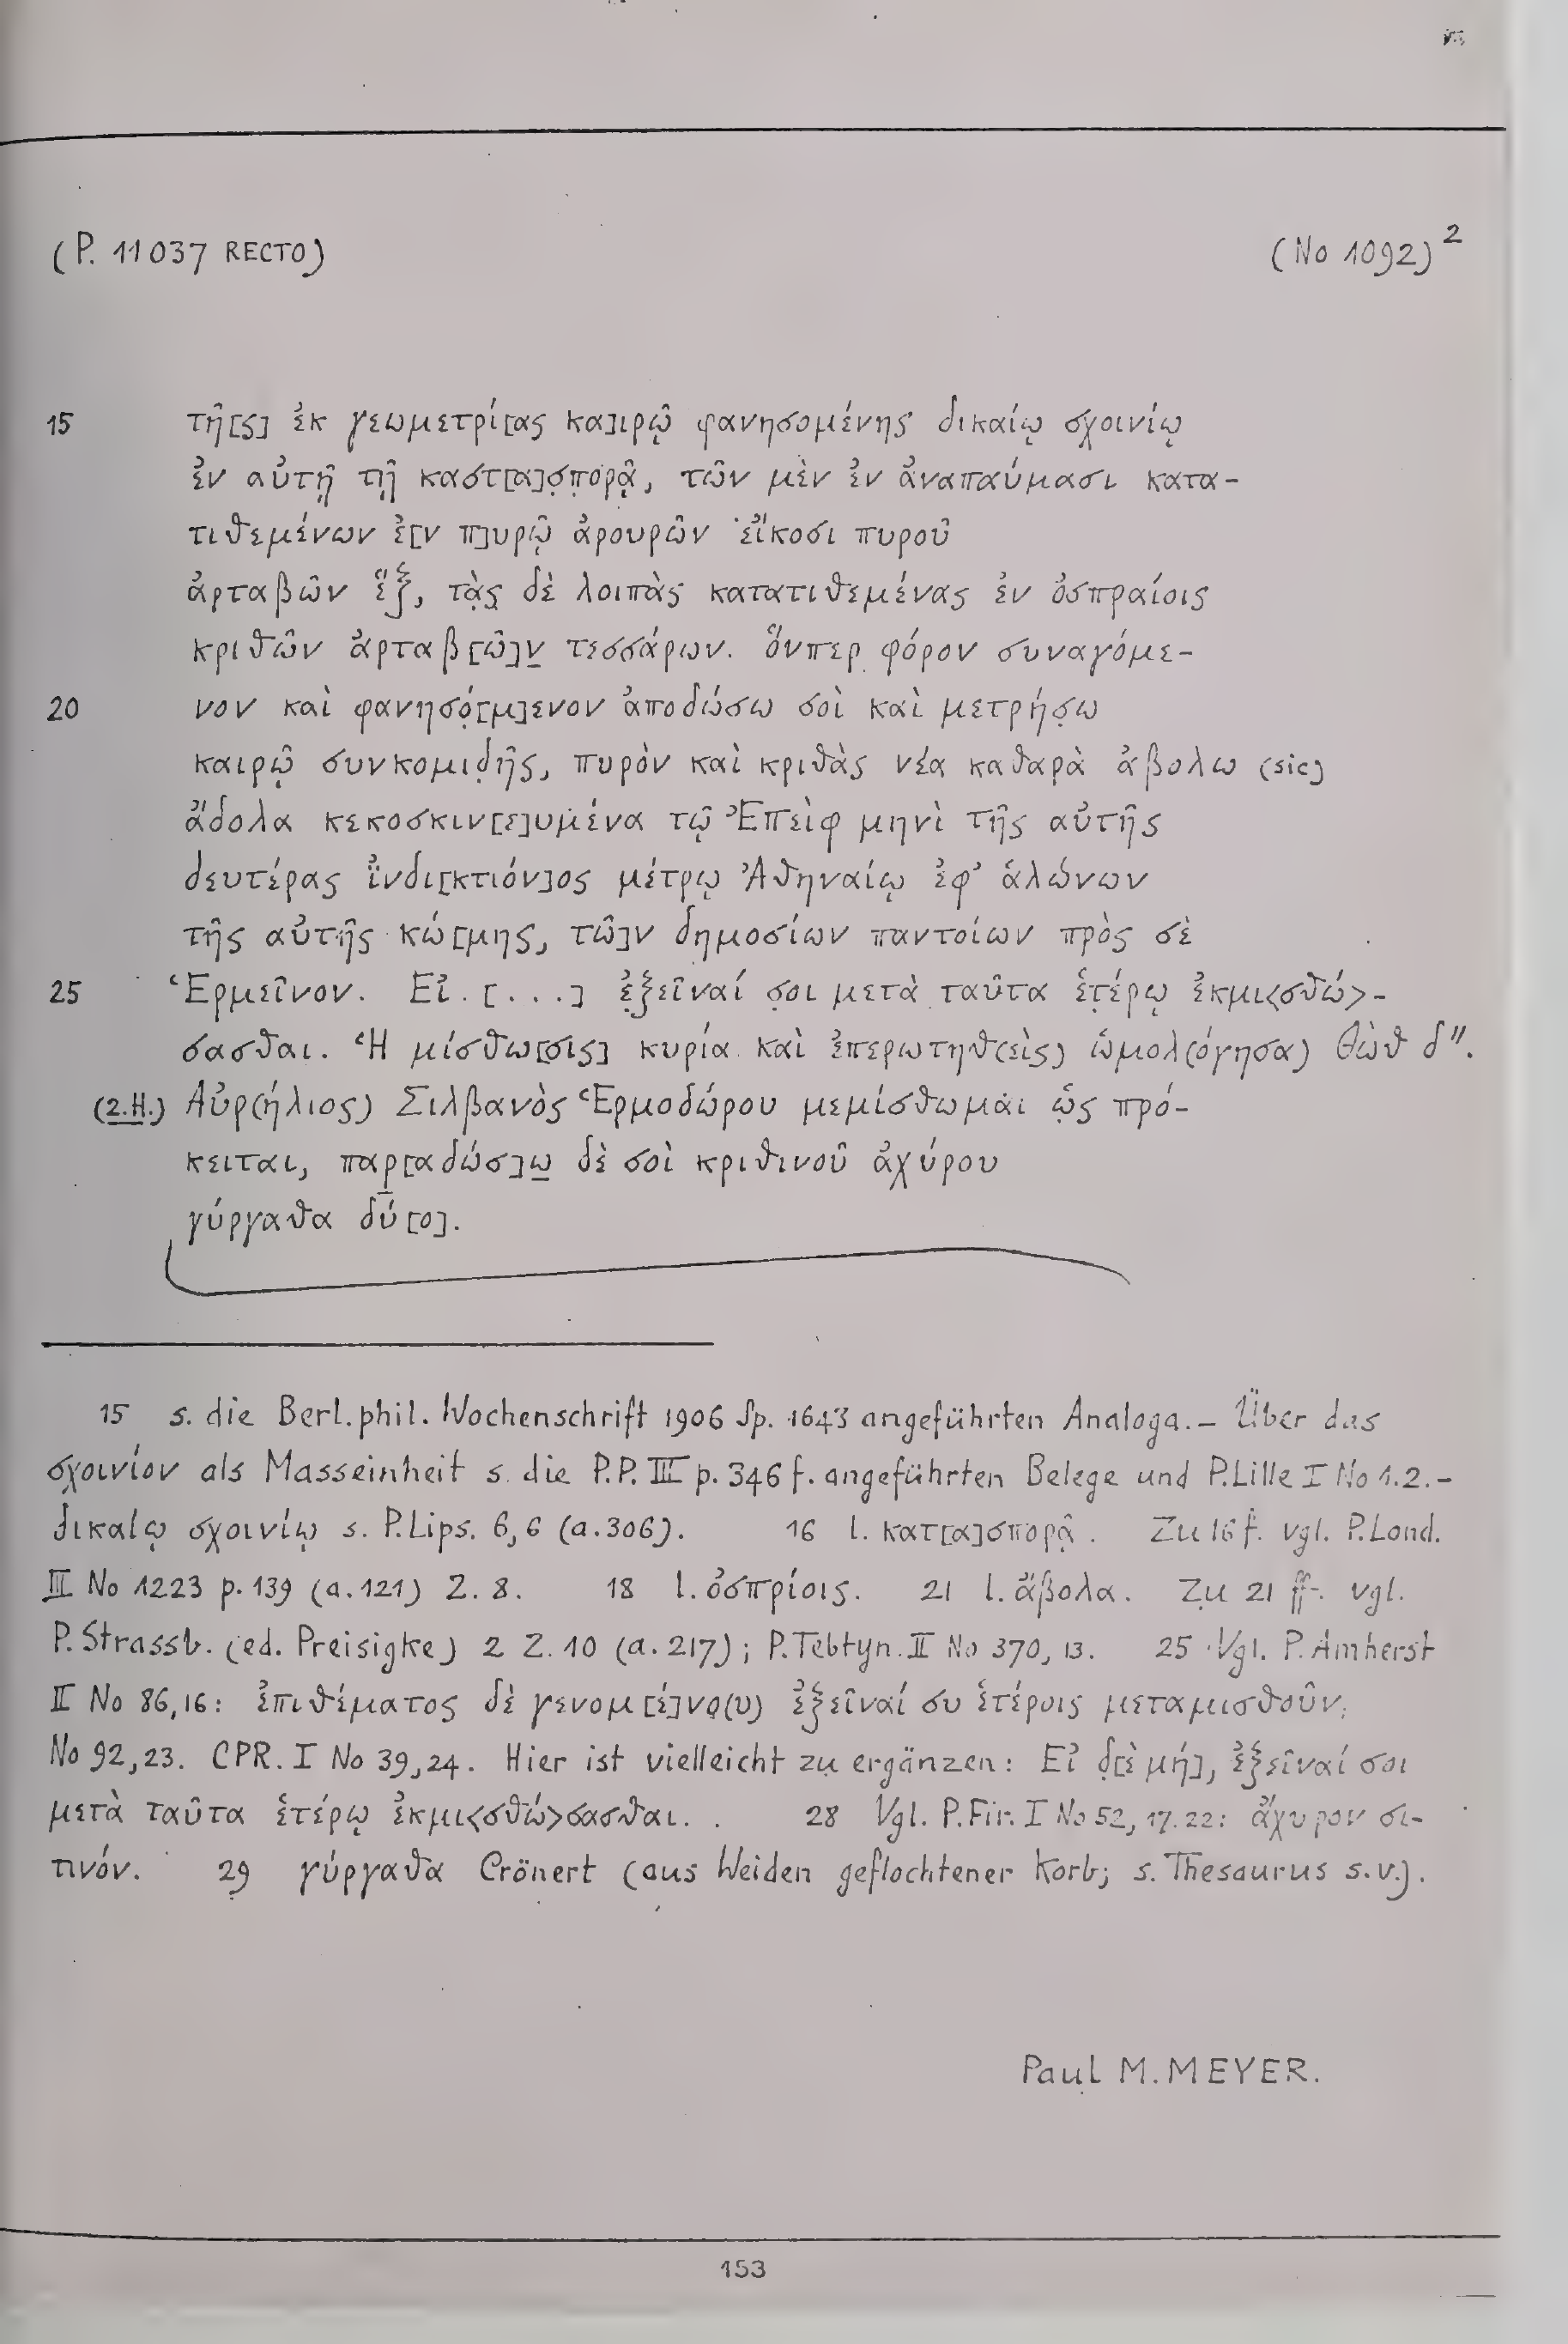 (P. 11037 RECTO) (No 1092)²
15 τῆ[ς] ἐκ γεωμετρί[ας κα]ιρῷ φανησομένης δικαίῳ σχοινίῳ
ἐν αὐτῇ τῇ καστ[α]σ̣π̣ορᾷ, τῶν μὲν ἐν ἀναπαύμασι κατα-
τιθεμένων ἐ[ν π]υρῷ ἀρουρῶν εἴκοσι πυροῦ
ἀρταβῶν ἕξ, τὰ̣ς̣ δὲ λοιπὰς κατατιθεμένας ἐν ὀσπραίοις
κριθῶν ἀρταβ[ῶ]ν̲ τεσσάρων. ὅνπερ φόρον συναγόμε-
20 νον καὶ φανησό̣[μ]ενον ἀποδώσω σοὶ καὶ μετρήσ̣ω
καιρῷ συνκομιδ̣ῆς, πυρὸν καὶ κριθὰς νέα καθαρὰ ἀβολω (sic)
ἄδολα κεκοσκιν[ε]υμένα τῷ Ἐπεὶφ μηνὶ τῆς αὐτῆς
δευτέρας ἰνδι[κτιόν]ος μέτρῳ Ἀθηναίῳ ἐφ' ἁλώνων
τῆς αὐτῆς κώ[μης, τῶ]ν δημοσίων παντοίων πρὸς σὲ
25 Ἑρμεῖνον. Εἰ . [ . . . ] ἐ̣ξεῖναί σ̣οι μετὰ ταῦτα ἑτ̣έρῳ ἐκμι<σθώ>-
σασθαι. Ἡ μίσθω[σις] κυρία καὶ ἐπερωτηθ(εὶς) ὡμολ(όγησα) Θὼθ δ''.
(2.H.) Αὐρ(ήλιος) Σιλβανὸς Ἑρμοδώρου μεμίσθωμαι ὡς πρό-
κειται, παρ̲[αδώσ]ω̲ δὲ σοὶ κριθινοῦ ἀχύρου
γύργαθα δύ[ο].
15 s. die Berl. phil. Wochenschrift 1906 Sp. 1643 angeführten Analoga. – Über das
σχοινίον als Masseinheit s. die P.P. III p. 346 f. angeführten Belege und P. Lille I No 1.2. –
δικαίῳ σχοινίῳ s. P. Lips. 6,6 (a. 306). 16 l. κατ[α]σπορᾷ. Zu 16 f. vgl. P. Lond.
III No 1223 p. 139 (a. 121) Z. 8. 18 l. ὀσπρίοις. 21 l. ἄβολα. Zu 21 ff. vgl.
P. Strassb. (ed. Preisigke) 2 Z. 10 (a. 217); P. Tebtyn. II No 370, 13. 25 Vgl. P. Amherst
II No 86,16: ἐπιθέματος δὲ γενομ[έ]νο̣(υ) ἐξεῖναί συ ἑτέροις μεταμισθοῦν;
No 92,23. CPR. I No 39,24. Hier ist vielleicht zu ergänzen: Εἰ δ̣[ὲ μή], ἐξεῖναί σοι
μετὰ ταῦτα ἑτέρῳ ἐκμι<σθώ>σασθαι. 28 Vgl. P. Fir. I No 52, 17. 22: ἄχυρον σι-
τινόν. 29 γύργαθα Crönert (aus Weiden geflochtener Korb; s. Thesaurus s.v.).
Paul M. MEYER.
153